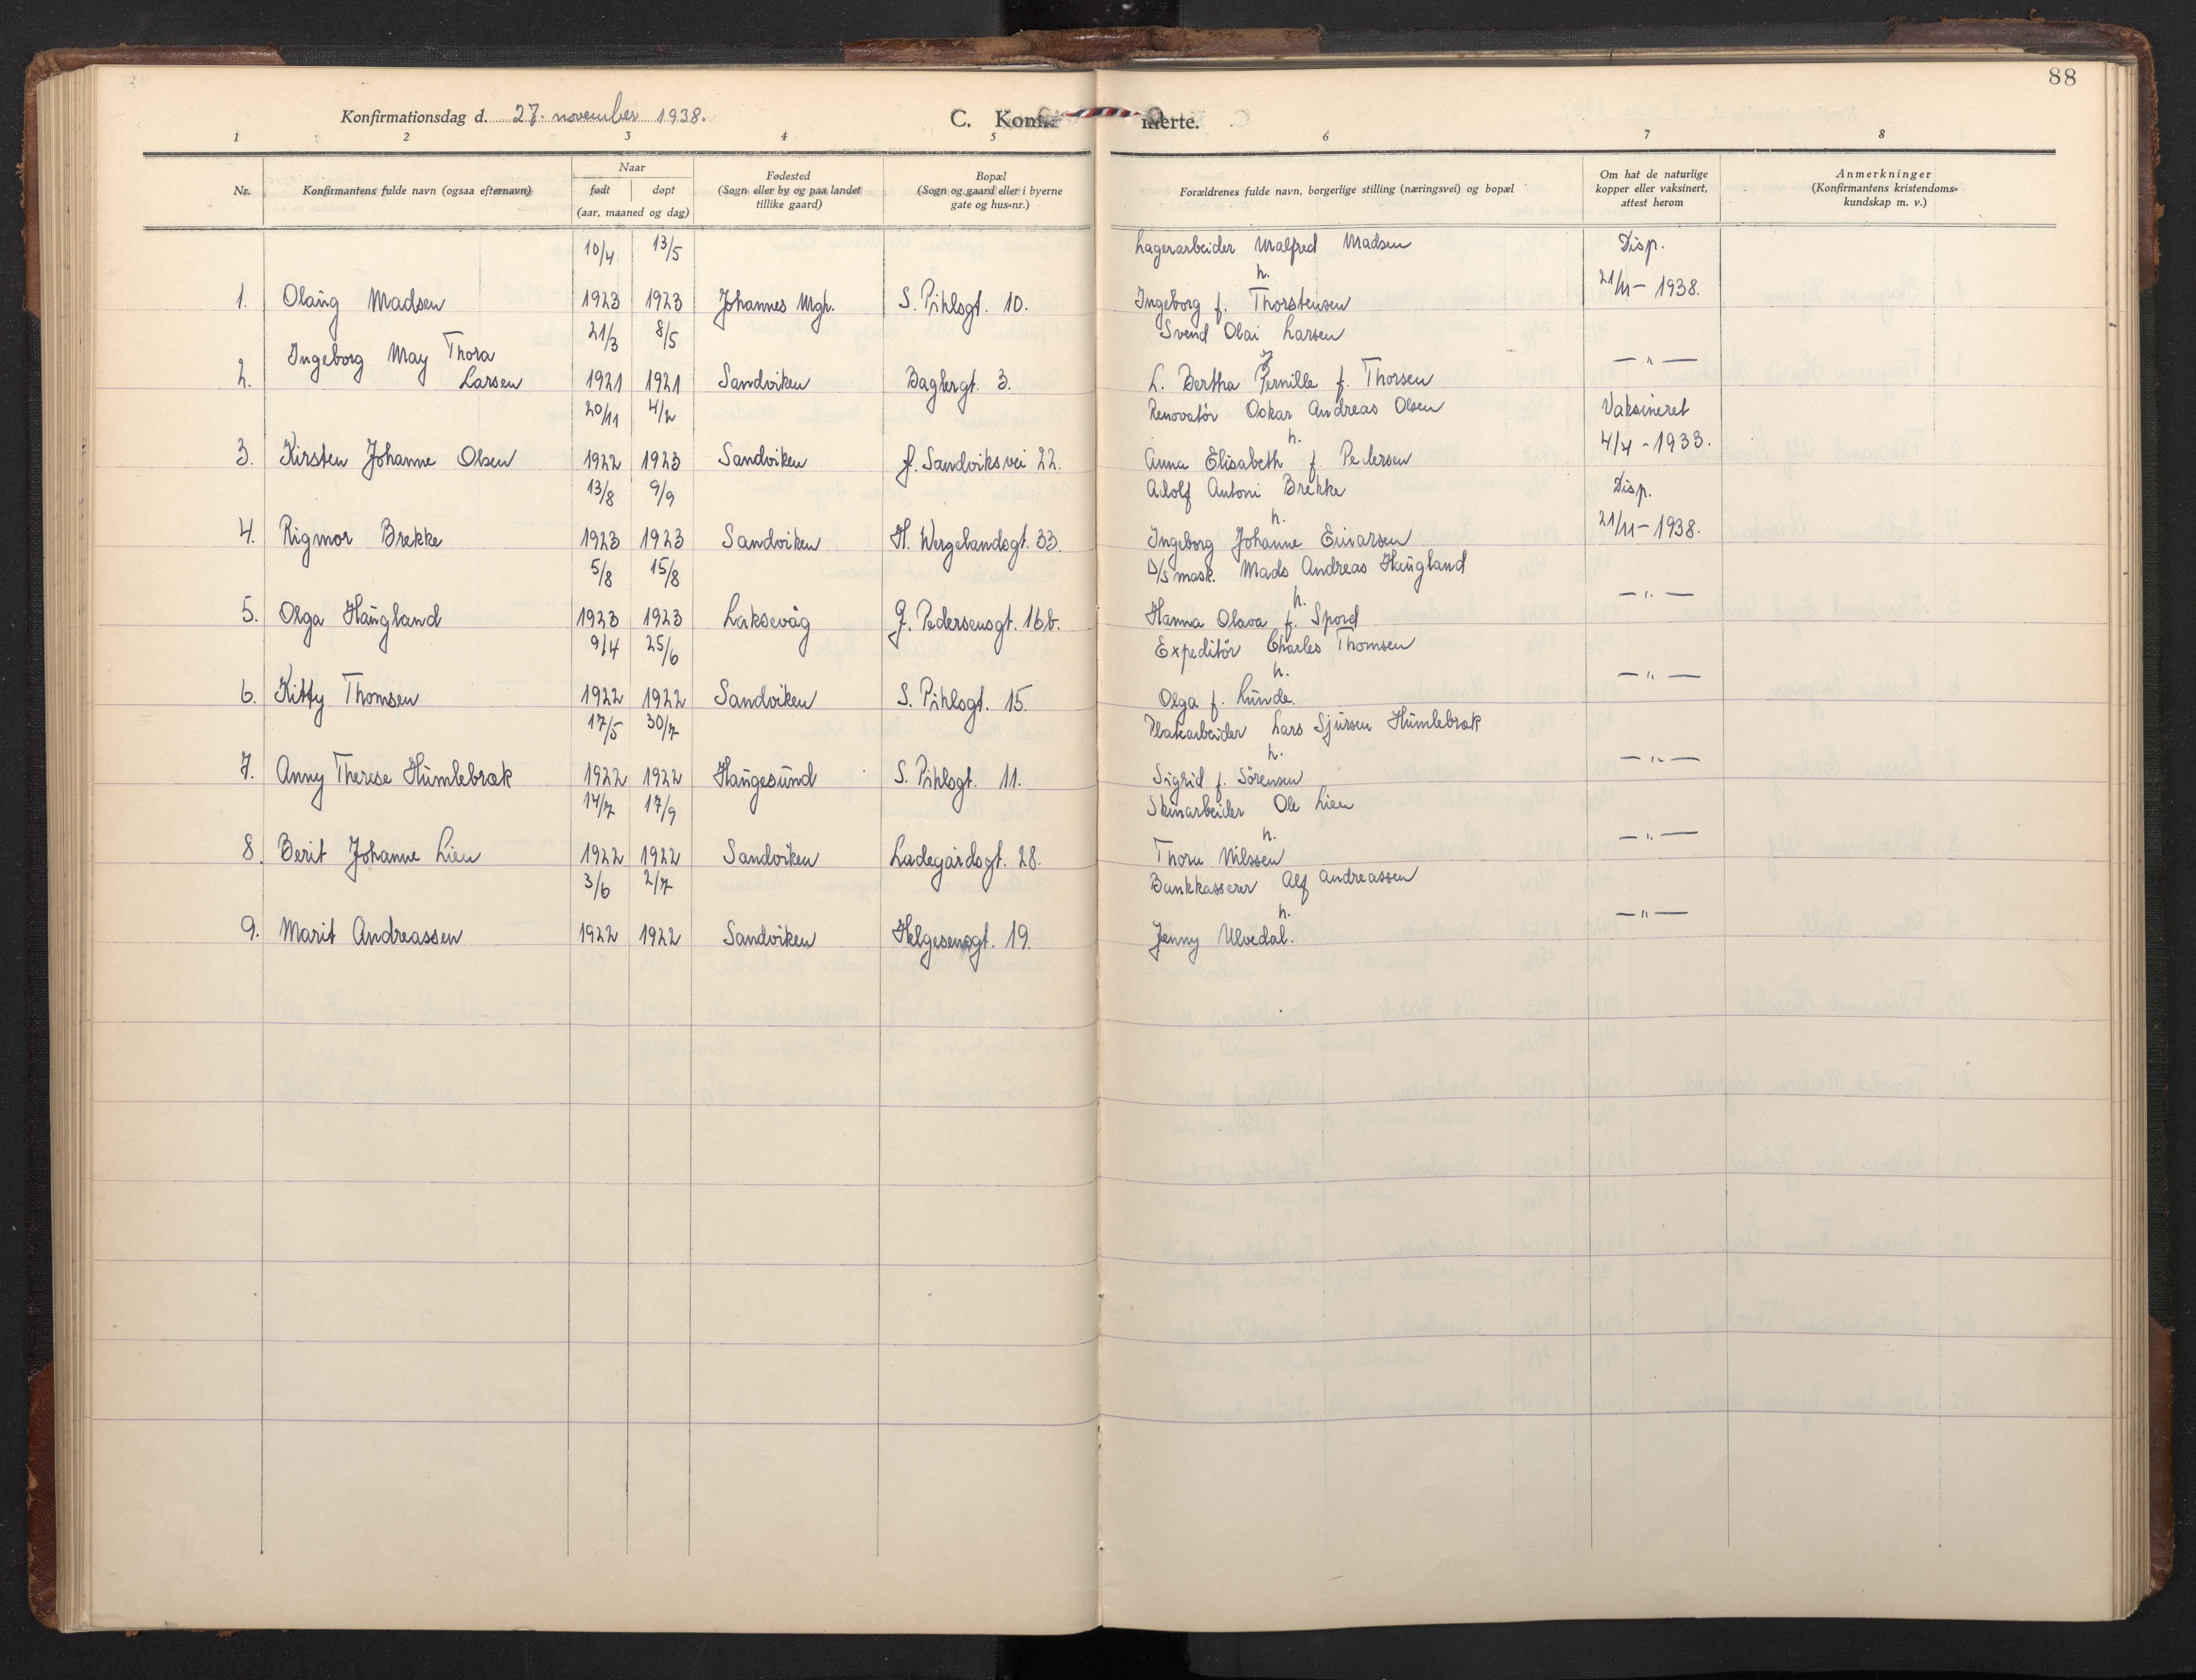 88
Konfirmationsdag d. 27. november 1938.
C. Konfir merte.
1 2 3 4 5 6 7 8
Nr.
Konfirmantens fulde navn (ogsaa efternavn)
Naar
født døpt
(aar, maaned og dag)
Fødested
(Sogn eller by og paa landet
tillike gaard)
Bopæl
(Sogn og gaard eller i byerne
gate og hus-nr.)
Forældrenes fulde navn, borgerlige stilling (næringsvei) og bopæl
Om hat de naturlige
kopper eller vaksinert,
attest herom
Anmerkninger
(Konfirmantens kristendoms-
kundskap m. v.)
10/4 13/5 Lagerarbeider Malfred Madsen Disp.
h. 21/11 - 1938.
1. Olaug Madsen 1923 1923 Johannes Mgh. S. Pihlsgt. 10. Ingeborg f. Thorstensen
21/3 8/5 Svend Olai Larsen
Ingeborg May Thora — " —
2. Larsen 1921 1921 Sandviken Baglergt. 3. L. Bertha Pernille f. Thorsen
20/11 4/2 Renovatör Oskar Andreas Olsen Vaksineret
h. 4/4 - 1933.
3. Kirsten Johanne Olsen 1922 1923 Sandviken f. Sandviksvei 22. Anna Elisabeth f. Pedersen
13/8 9/9 Adolf Antoni Brekke Disp.
h. 21/11 - 1938.
4. Rigmor Brekke 1923 1923 Sandviken H. Wergelandsgt. 33. Ingeborg Johanne Einarsen
5/8 15/8 D/S mask. Mads Andreas Haugland
h. — " —
5. Olga Haugland 1923 1923 Laksevåg G. Pedersensgt. 16b. Hanna Olava f. Spord
9/4 25/6 Expeditör Charles Thomsen
h. — " —
6. Kitty Thomsen 1922 1922 Sandviken S. Pihlsgt. 15. Olga f. Lunde.
17/5 30/7 Platearbeider Lars Sjursen Humlebræk
h. — " —
7. Anny Therese Humlebræk 1922 1922 Haugesund S. Pihlsgt. 11. Sigrid f. Sörensen
14/7 17/9 Skinarbeider Ole Lien
h. — " —
8. Berit Johanne Lien 1922 1922 Sandviken Ladegårdsgt. 28. Thora Nilssen
3/6 2/7 Bankkasserer Alf Andreassen
h. — " —
9. Marit Andreassen 1922 1922 Sandviken Helgesensgt. 19. Jenny Ulvedal.